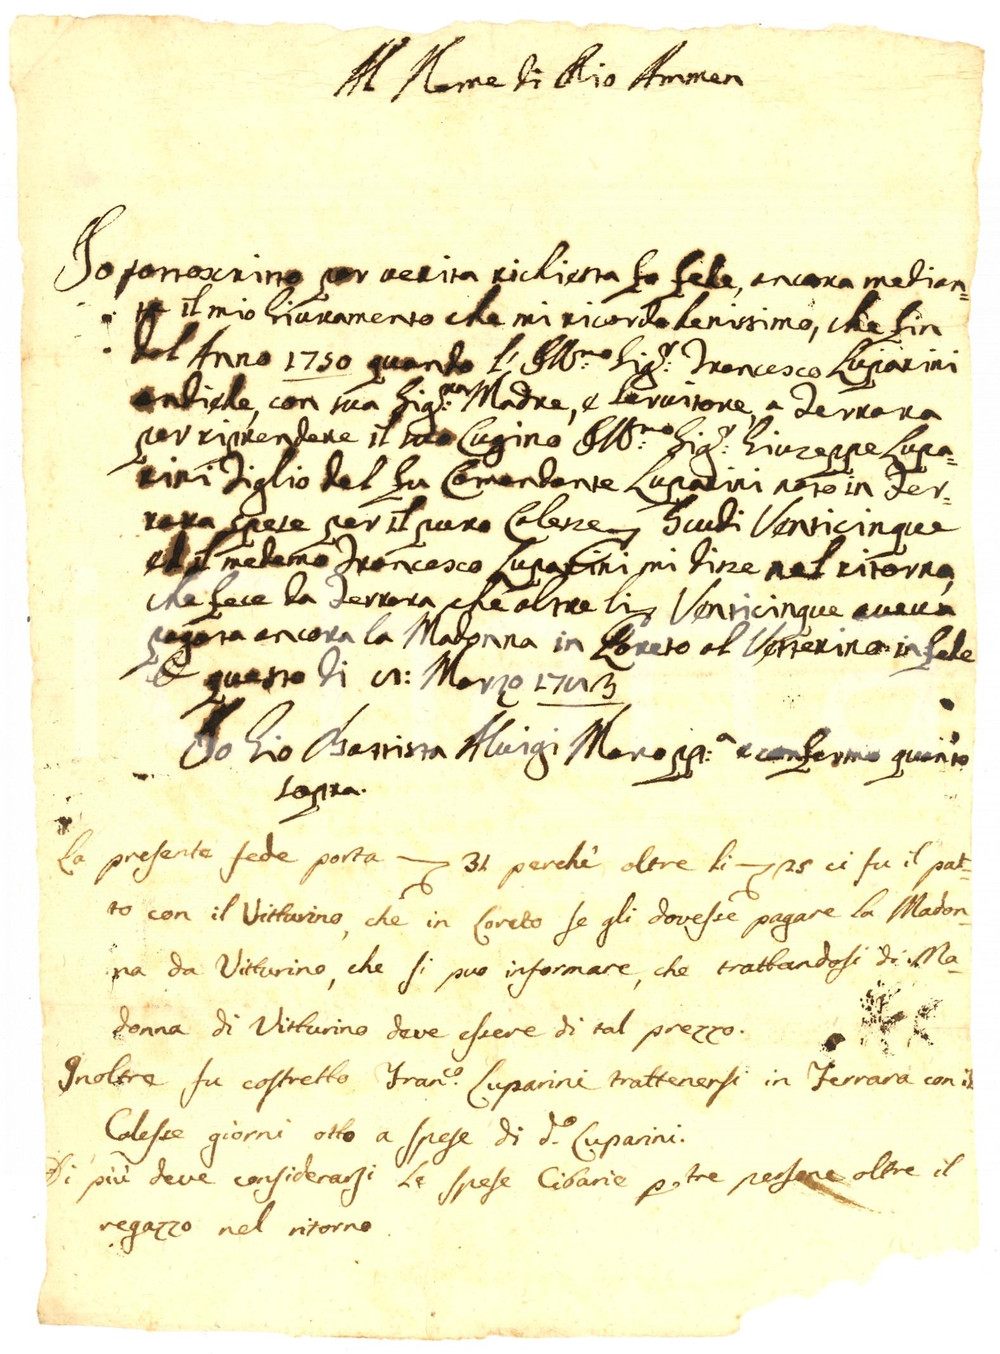 Al Nome di Dio Ammen
Io sottoscritto per verita richiesta fo fede, ancora median=
te il mio Giuramento che mi ricordo benissimo, che fin
dal Anno 1750 quando l' Ill.mo Sig.r Francesco Luparini
andiede, con sua Sig.ra Madre, e Servitore, a Ferrara
per riprendere il suo Cugino Ill.mo Sig.r Giuseppe Lupa=
rini Figlio del fu Comendante Luparini nato in Fer=
rara spese per il puro Calesse Scudi Venticinque
ed il medemo Francesco Luparini mi disse nel ritorno,
che fece da Ferrara che oltre li Venticinque aveva
pagata ancora la Madonna in Loreto al Vetturino in fede
questo di Marzo
Io Gio Battista Aluigi Mano pp.a e confermo quanto
sopra.
La presente fede porta 31 perche oltre li 25 ci fu il pat=
to con il Vitturino, che in Loreto se gli dovesse pagare la Madon=
na da Vitturino, che si puo informare, che trattandosi di Ma=
donna di Vitturino deve essere di tal prezzo.
Inoltre fu costretto Fran.co Luparini trattenersi in Ferrara con il
Calesse giorni otto a spese di d.o Luparini.
Di più deve considerarsi le spese Cibarie p. tre persone oltre il
regazzo nel ritorno